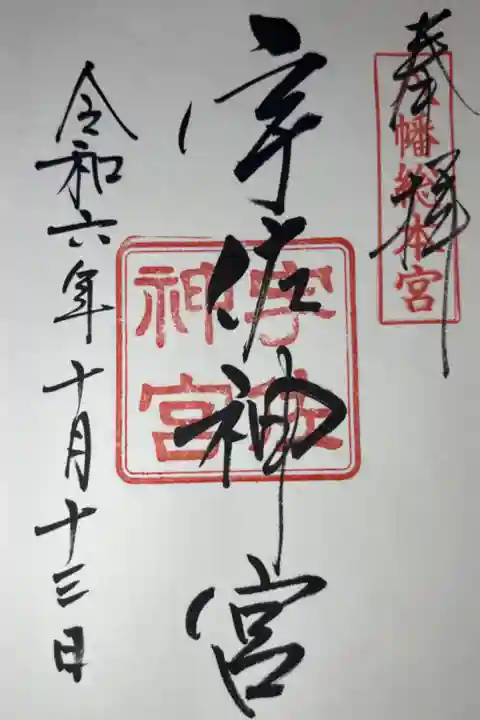 奉拝
八幡総本宮
宇佐神宮
宇佐
神宮
令和六年十月十三日